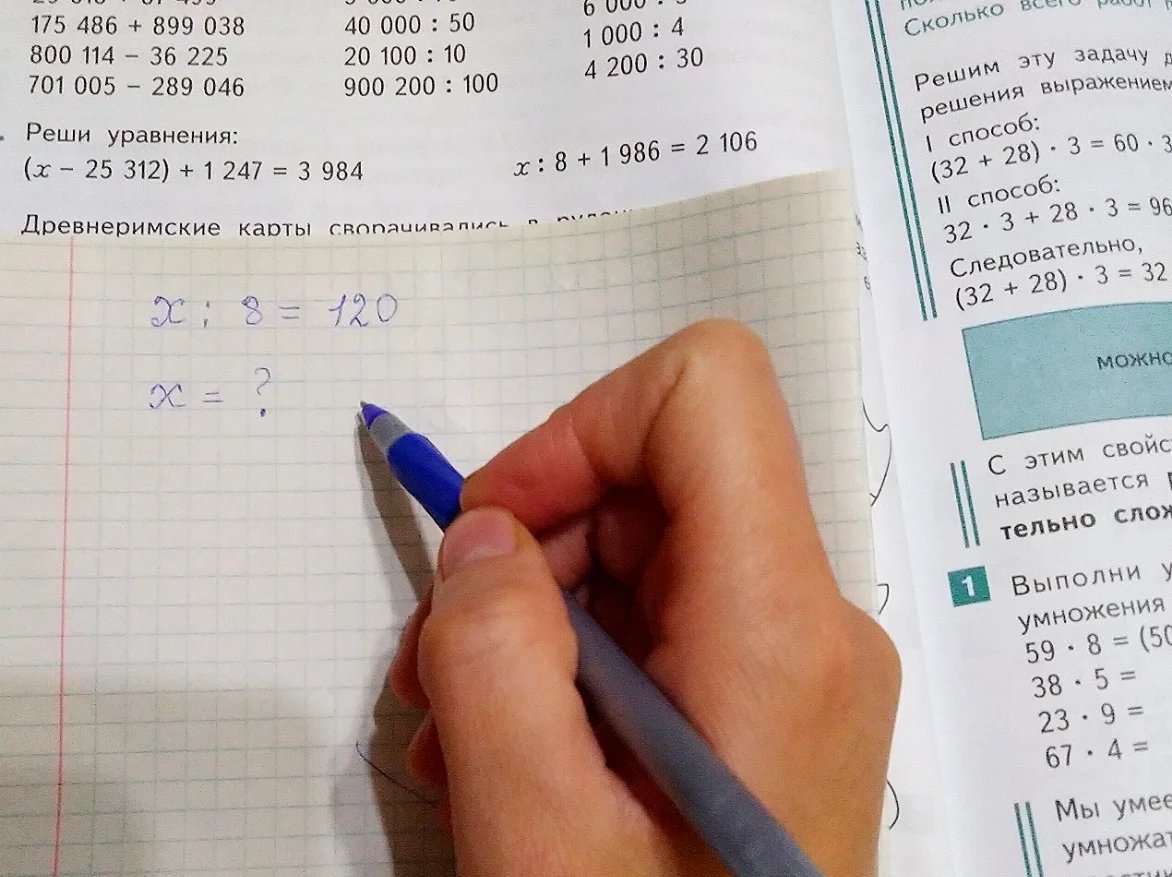 175 486 + 899 038
800 114 – 36 225
701 005 – 289 046
40 000 : 50
20 100 : 10
900 200 : 100
1 000 : 4
4 200 : 30
Реши уравнения:
(x – 25 312) + 1 247 = 3 984
x : 8 + 1 986 = 2 106
Древнеримские карты сворачивались в
x : 8 = 120
x = ?
Сколько всего работ
Решим эту задачу
решения выражением
I способ:
(32 + 28) · 3 = 60 · 3
II способ:
32 · 3 + 28 · 3 = 96
Следовательно,
(32 + 28) · 3 = 32
С этим
называется
1 Выполни
умножения
59 · 8 = (50
38 · 5 =
23 · 9 =
67 · 4 =
Мы